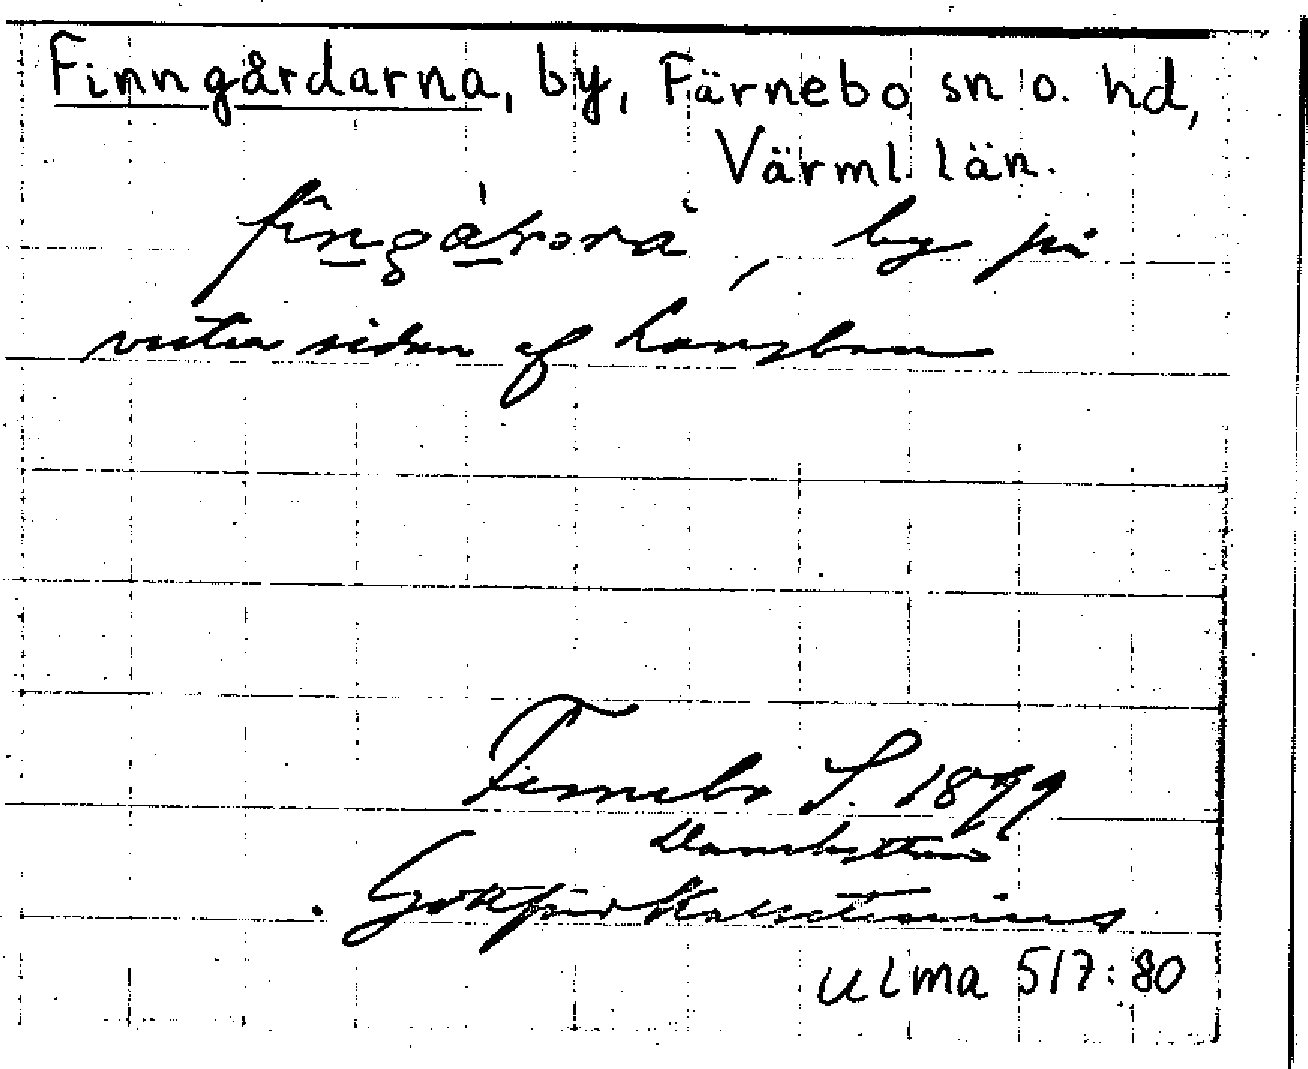 Finngårdarna, by, Färnebo sn o. hd,
Värml. län.
fingárorà, by på
vestra sidan af Långban
Fernebo S. 1899
Gottfrid Kallstenius
ULMA 517:80